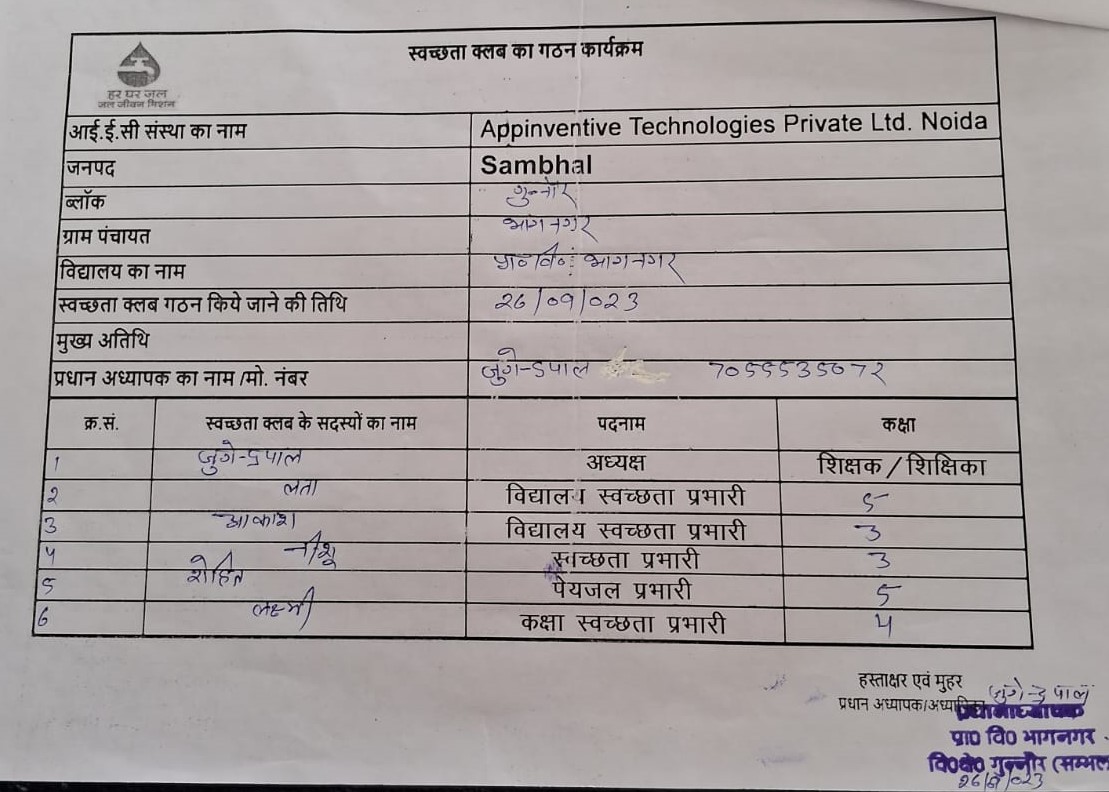 स्वच्छता क्लब का गठन कार्यक्रम
हर घर जल
जल जीवन मिशन
आई.ई.सी संस्था का नाम Appinventive Technologies Private Ltd. Noida
जनपद Sambhal
ब्लॉक गुन्नौर
ग्राम पंचायत भागनगर
विद्यालय का नाम प्रा० वि० भागनगर
स्वच्छता क्लब गठन किये जाने की तिथि 26/09/023
मुख्य अतिथि
प्रधान अध्यापक का नाम /मो. नंबर जुगेन्द्रपाल
क्र.सं. स्वच्छता क्लब के सदस्यों का नाम पदनाम कक्षा
1 जुगेन्द्रपाल अध्यक्ष शिक्षक / शिक्षिका
2 लता विद्यालय स्वच्छता प्रभारी 5
3 आकाश विद्यालय स्वच्छता प्रभारी 3
4 नीशू स्वच्छता प्रभारी 3
5 रोहित पेयजल प्रभारी 5
6 लक्ष्मी कक्षा स्वच्छता प्रभारी 4
हस्ताक्षर एवं मुहर
जुगेन्द्रपाल
प्रधान अध्यापक/अध्यापिका
प्रधानाध्यापक
प्रा0 वि0 भागनगर
वि0क्षे0 गुन्नौर (सम्भल
26/9/023